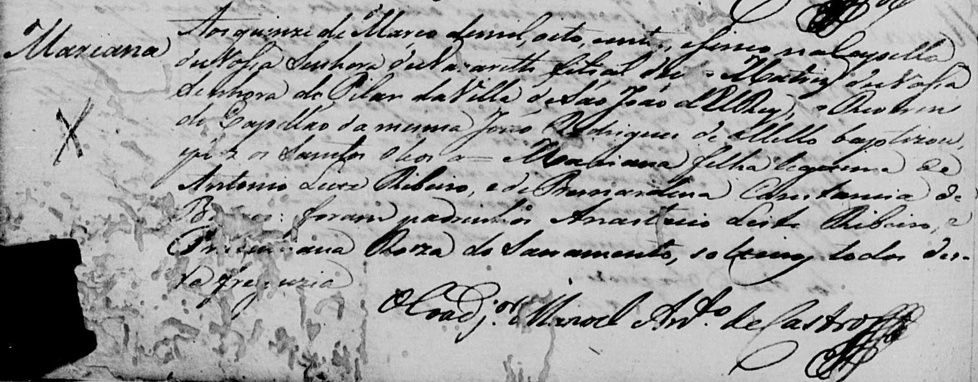 Marianna
Aos quinze de Março de mil, oito, cento, e sinco na Capella
de Nossa Senhora de Nazareth filial da Matriz de Nossa
Senhora do Pilar da Villa de São João d'El Rey, o Reveren
do Capellão da mesma João Rodrigues de Mello baptizou,
e pôz os Santos Oleos a Marianna filha legitima de
Antonio Leite Ribeiro, e de Bernardina Constancia de
foram padrinhos Anastacio Leite Ribeiro, e
Anna Roza do Sacramento, todos des-
ta freguezia
O Coadj.or Manoel Ant.o de Castro